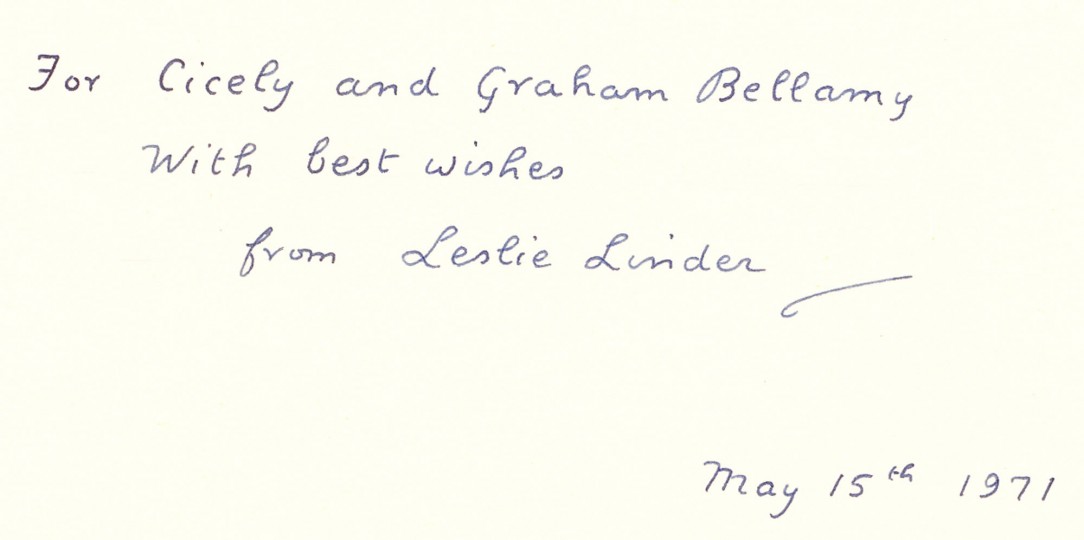 For Cicely and Graham Bellamy
With best wishes
from Leslie Linder
May 15th 1971